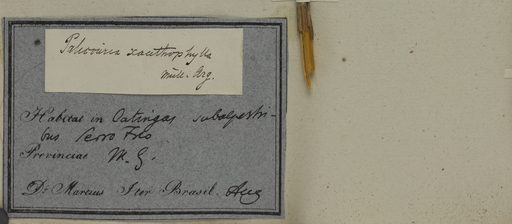 Palicourea xanthophylla
Müll. Arg.
Habitat in Catingas subalpestri-
bus Serro Frio
Provinciae M. G.
Dr. Martius Iter Brasil. Aug